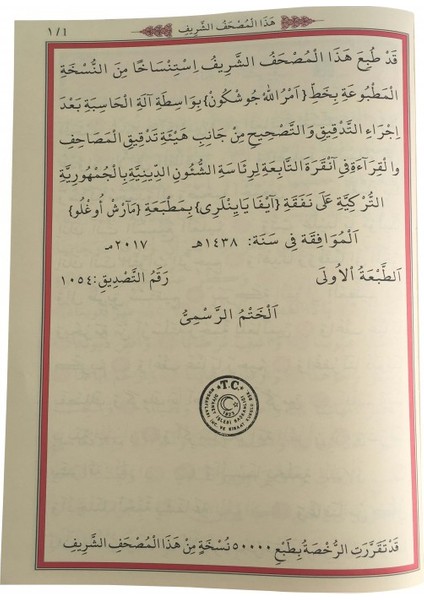 هَذَا الْمُصْحَفُ الشَّرِيفِ
١/١
قَدْ طُبِعَ هَذَا الْمُصْحَفُ الشَّرِيفُ اِسْتِنْسَاخًا مِنَ النُّسْخَةِ
الْمَطْبُوعَةِ بِخَطِّ {اَمْرُ اللّٰهْ جُوشْكُونْ} بِوَاسِطَةِ آلَةِ الْحَاسِبَةِ بَعْدَ
اِجْرَاءِ التَّدْقِيقِ وَالتَّصْحِيحِ مِنْ جَانِبِ هَيْئَةِ تَدْقِيقِ الْمَصَاحِفِ
وَالْقِرَاءَةِ فِي آنْقَرَةَ التَّابِعَةِ لِرِئَاسَةِ الشُّئُونِ الدِّينِيَّةِ بِالْجُمْهُورِيَّةِ
التُّرْكِيَّةِ عَلَى نَفَقَةِ {آيْفَا يَايِينْلَرِى} بِمَطْبَعَةِ {مَآرْشْ أُوغْلُو}
اَلْمُوَافِقَةِ فِى سَنَةِ: ١٤٣٨هـ ٢٠١٧مـ
اَلطَّبْعَةُ الْاُولَى رَقَمُ التَّصْدِيقِ: ١٠٥٤
اَلْخَتْمُ الرَّسْمِىُّ
T.C.
قَدْ تَقَرَّرَتِ الرُّخْصَةُ بِطَبْعِ ٥٠٠٠٠ نُسْخَةٍ مِنْ هَذَا الْمُصْحَفِ الشَّرِيفِ